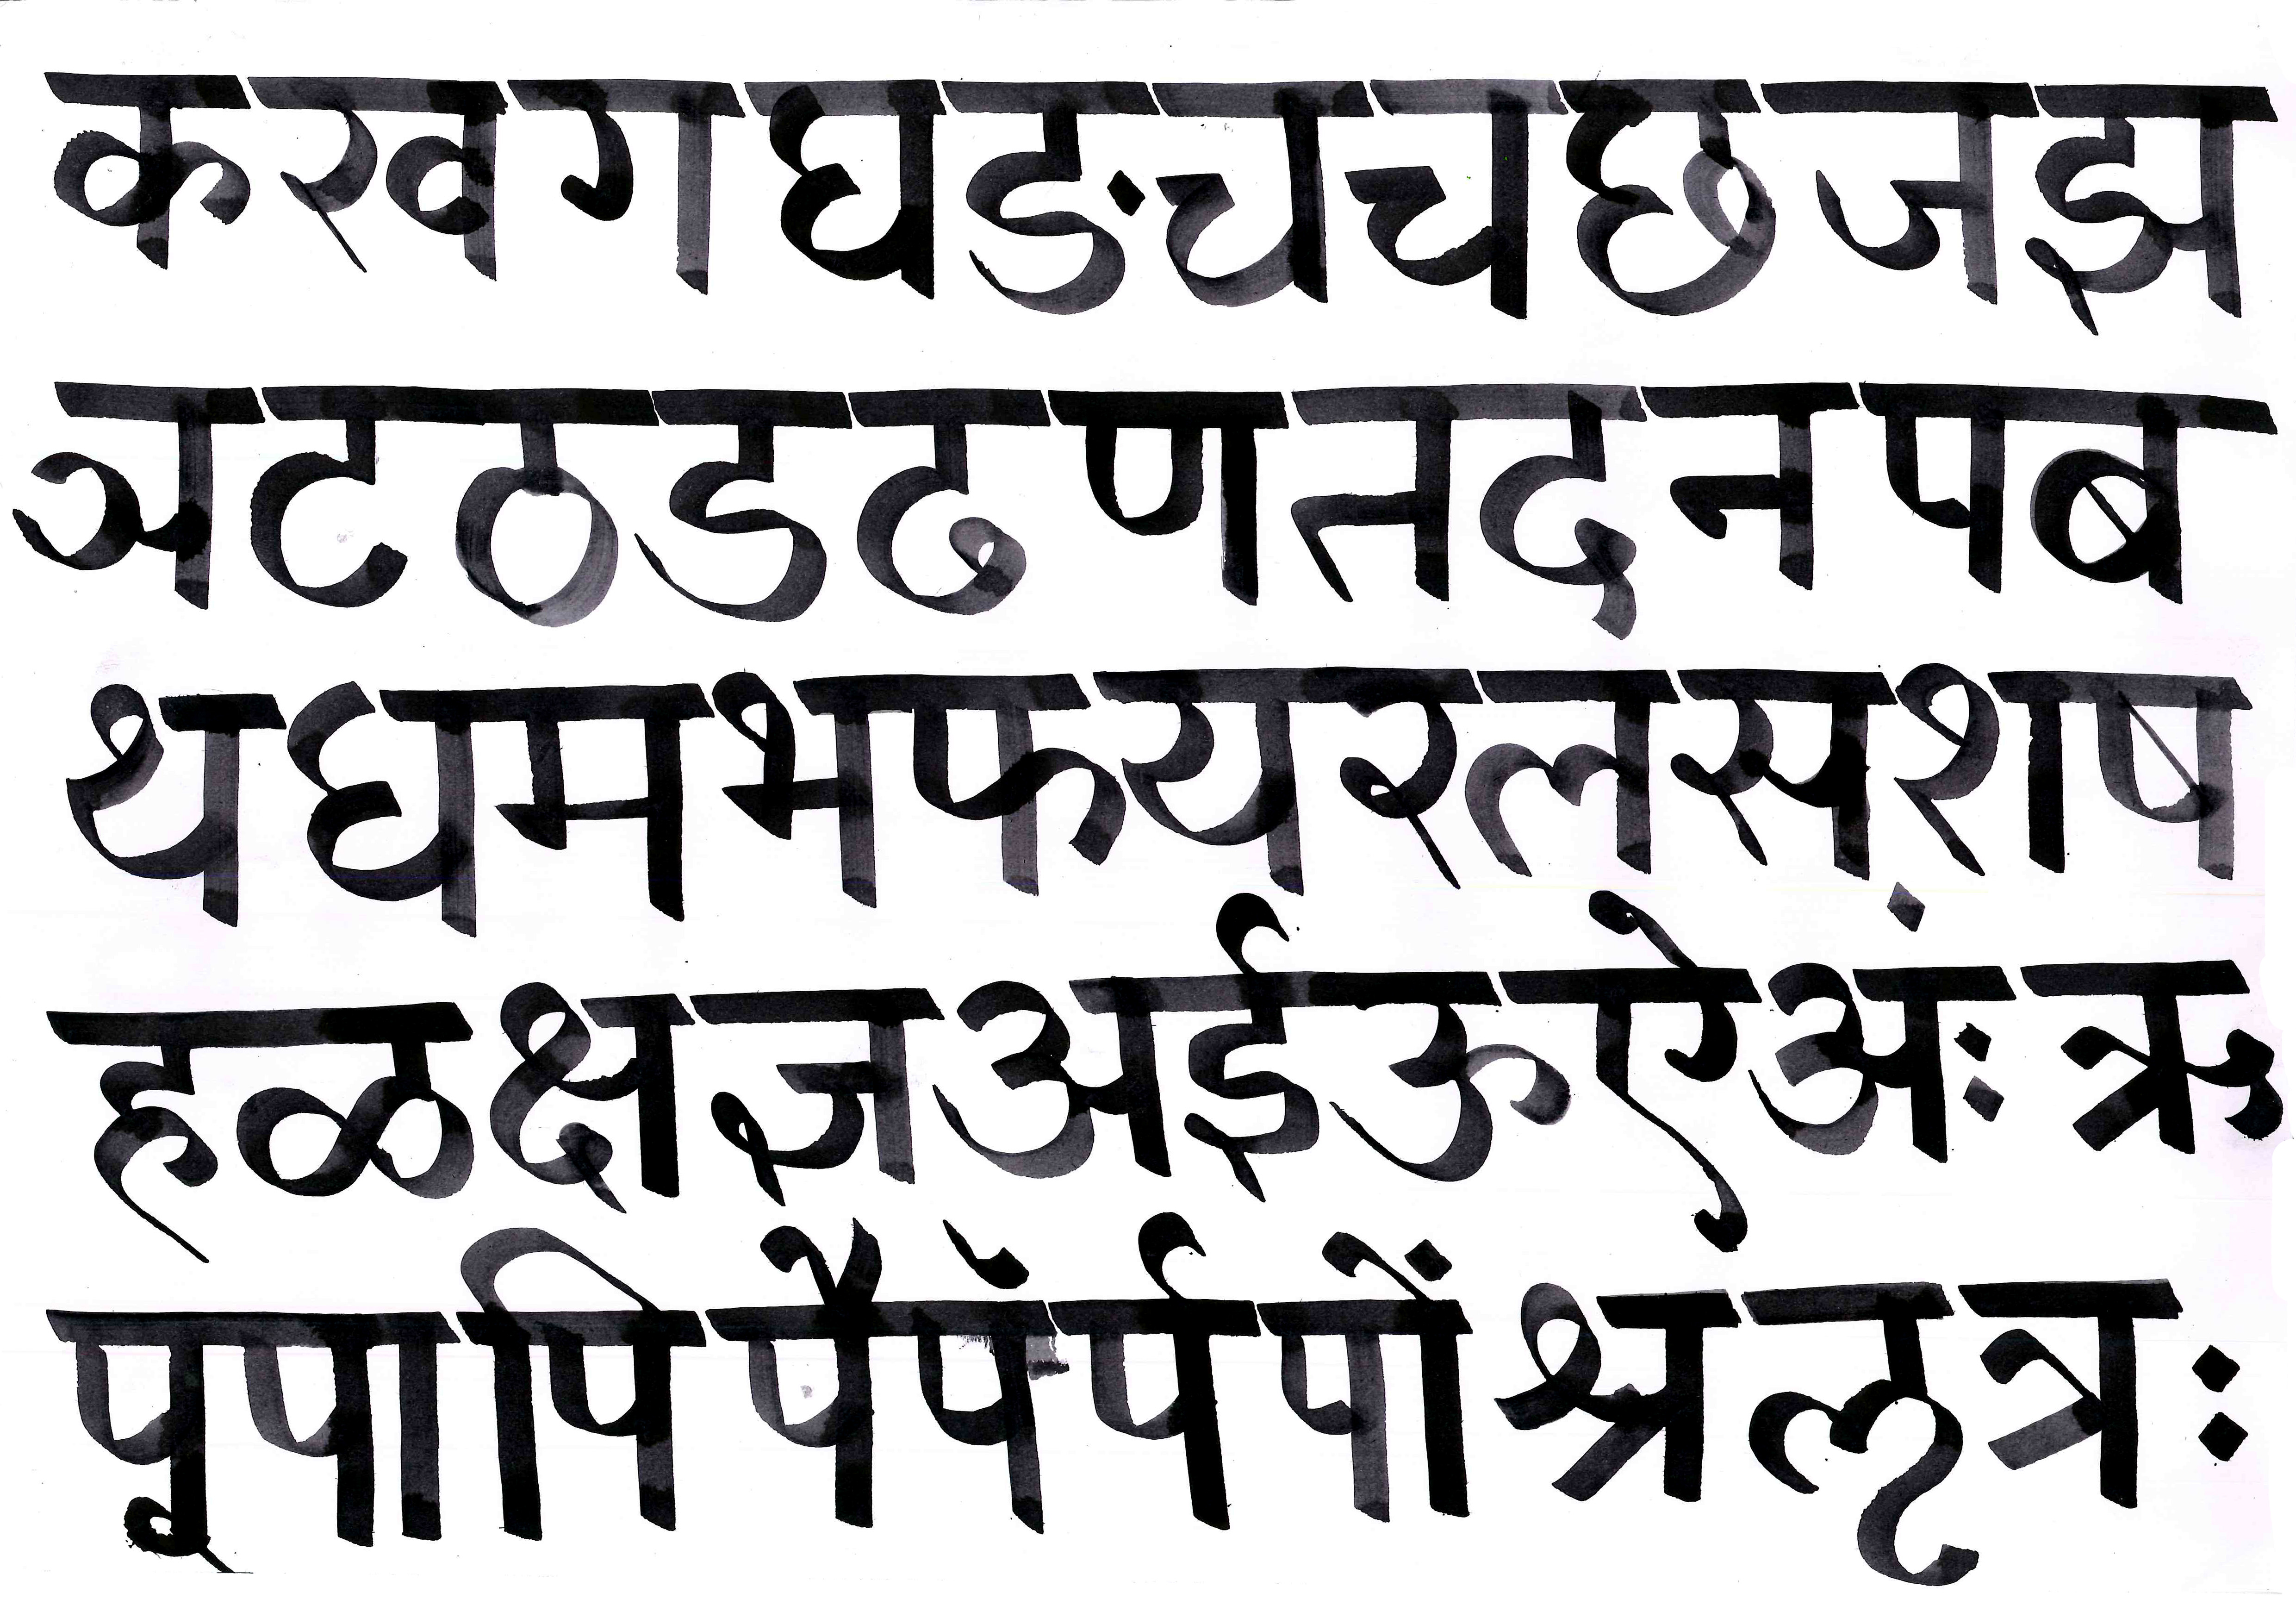 क ख ग घ ङ च च छ ज झ
ञ ट ठ ड ढ ण त द न प ब
थ ध म भ फ य र ल स श ष
ह ळ क्ष ज्ञ अ ई ऊ ऐ अंः ऋ
पू पा पि पै पॅ र्प पों श्र ऌ त्र :